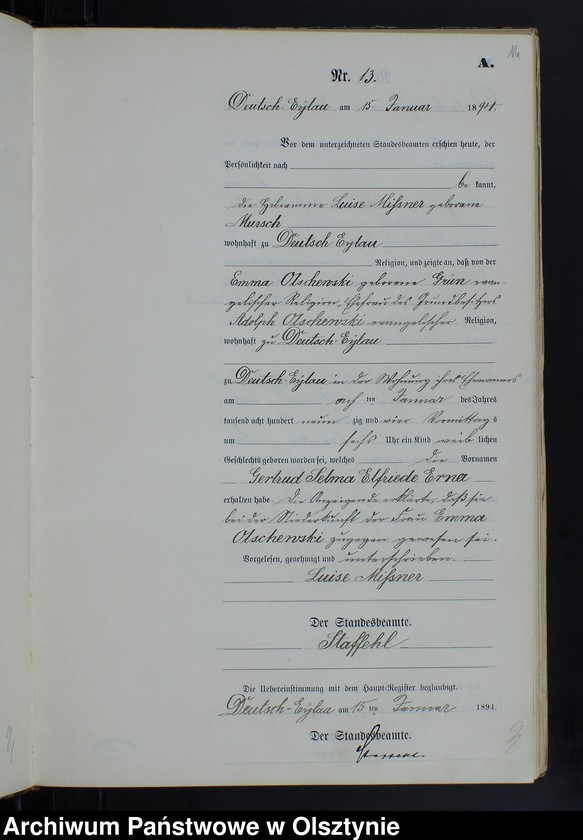 A.
Nr. 13.
Deutsch-Eylau am 15 Januar 1894.
Vor dem unterzeichneten Standesbeamten erschien heute, der
Persönlichkeit nach
bekannt,
die Hebeamme Luise Mißner geborene
Mursch
wohnhaft zu Deutsch Eylau
Religion, und zeigte an, daß von der
Emma Olschewski geborene Grün evan-
gelischer Religion, Ehefrau des Grundbesitzers
Adolph Olschewski evangelischer Religion,
wohnhaft zu Deutsch-Eylau
zu Deutsch-Eylau in der Wohnung ihres Ehemannes
am acht ten Januar des Jahres
tausend acht hundert neun zig und vier Vormittags
um sechs Uhr ein Kind weib lichen
Geschlechts geboren worden sei, welches die Vornamen
Gertrud Selma Elfriede Erna
erhalten habe Die Anzeigende erklärte, daß sie
bei der Niederkunft der Frau Emma
Olschewski zugegen gewesen sei.
Vorgelesen, genehmigt und unterschrieben.
Luise Mißner
Der Standesbeamte.
Staffehl
Die Uebereinstimmung mit dem Haupt-Register beglaubigt.
Deutsch-Eylau am 15 ten Januar 1894.
Der Standesbeamte.
Archiwum Państwowe w Olsztynie